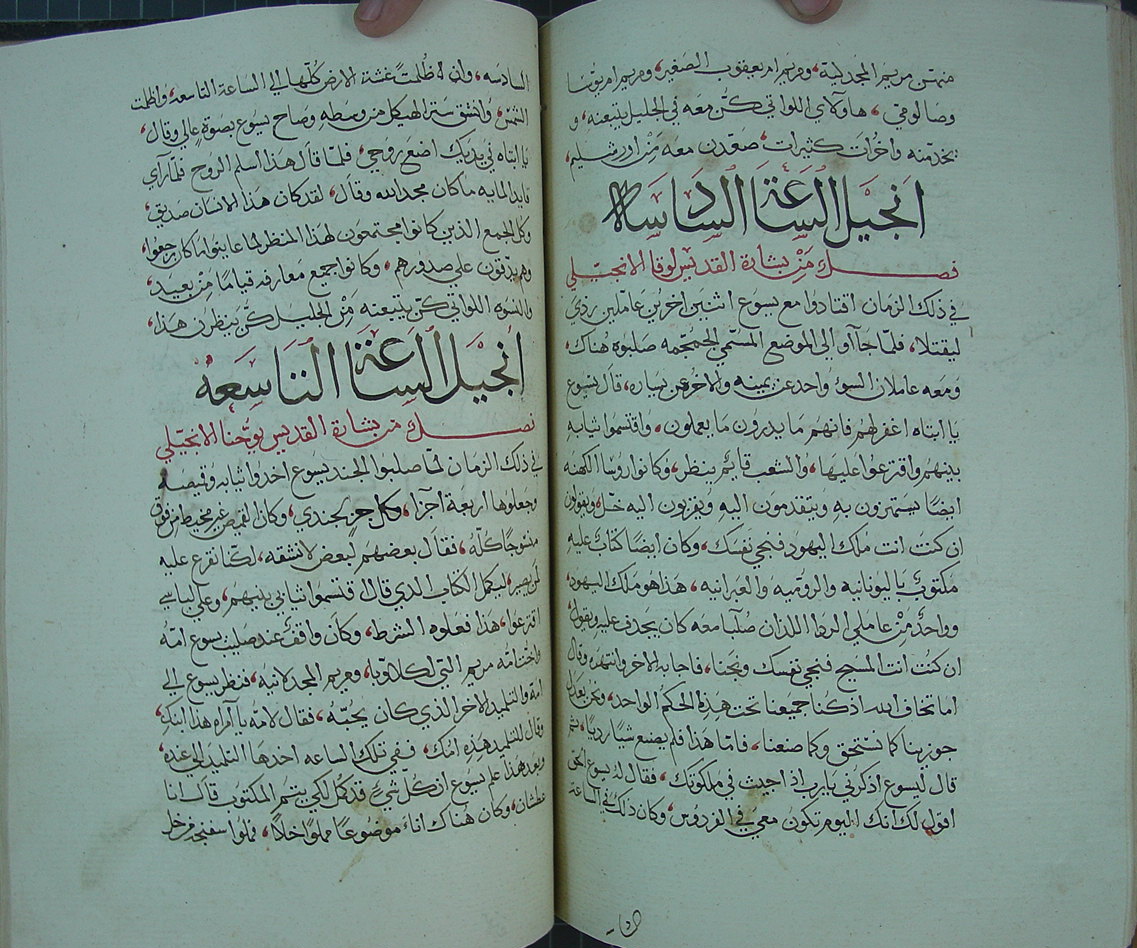 منهن مريم المجدلية، ومريم ام يعقوب الصغير، ومريم ام يوسا
وصالومي، هاولاي اللواتي كن معه في الجليل يتبعنه، و
يخدمنه واخرات كثيرات صعدن معه من اورشليم،
انجيل الساعة السادسه
فصل من بشارة القديس لوقا الانجيلي
في ذلك الزمان اقتادوا مع يسوع اثنين اخرين عاملين ردي
ليقتلا، فلما جاآوا الى الموضع المسمي الجمجمه صلبوه هناك،
ومعه عاملان السوء واحد عن يمينه والاخر عن يساره، قال يسوع
يا ابتاه اغفر لهم فانهم ما يدرون ما يعملون، واقتسموا ثيابه
بينهم واقترعوا عليها، والشعب قايم ينظر، وكانوا روسا الكهنه
ايضًا يستهزون به ويتقدمون اليه ويقربون اليه خل، ويقولون
ان كنت انت ملك اليهود فنجي نفسك، وكان ايضًا كتاب عليه
مكتوب باليونانيه والروميه والعبرانيه، هذا هو ملك اليهود،
وواحد من عاملي الردا اللذان صلبا معه كان يجدف عليه ويقول،
ان كنت انت المسيح فنجي نفسك ونجنا، فاجابه الاخر وانتهره وقال
اما تخاف الله اذ كنا جميعنا تحت هذه الحكم الواحد، ونحن بعدل
جوزينا كما نستحق وكما صنعنا، فاما هذا فلم يصنع شيًا رديًا، ثم
قال ليسوع اذكرني يا رب اذ اجيت في ملكوتك، فقال له يسوع الحق
اقول لك انك اليوم تكون معي في الفردوس وكان ذلك في الساعة
السادسه، وان لاظلمت غشة الارض كلها الي الساعة التاسعه، واظلمت
الشمس، وانشق ستر الهيكل من وسطه وصاح يسوع بصوة عالي وقال،
يا ابتاه في يديك اضع روحي، فلما قال هذا اسلم الروح فلما رآي
قايد المايه ما كان مجد الله وقال، لقد كان هذا الانسان صديق،
وكل الجمع الذين كانوا مجتمعون لهذا المنظر لما عاينوا ما كان رجعوا،
وهم يدقون علي صدورهم، وكانوا جميع معارفه قيامًا من بعيد،
والنسوه اللواتي كن يتبعنه من الجليل كن ينظرن هذا،
انجيل الساعة التاسعه
فصل من بشارة القديس يوحنا الانجيلي
في ذلك الزمان لما صلبوا الجند يسوع اخدوا ثيابه وقيصه
وجعلوها اربعة اجزا، وكل جز لجندي، وكان القميص غير مخيط من فوق
منسوجًا كله، فقال بعضهم لبعض لا نشقه، لكنا نقرع عليه
لمن يصير، ليكمل الكتاب الدي قال اقتسموا ثيابي بينهم، وعلي لباسي
اقترعوا، هذا فعلوه الشرط، وكان واقف عند صليب يسوع امه
واخت امه مريم التي لكلاوبا، ومريم المجدلانيه، فنظر يسوع الي
امه والتلميد الاخر الذي كان يحبه، فقال لامه يا امراه هذا ابنك،
وقال للتلميد هذه امك، ففي تلك الساعه اخدها التلميد الي عنده
وبعد هذا علم يسوع ان كل شيء قد كمل لكي يتم المكتوب قال انا
عطشان، وكان هناك اناء موضوعًا مملوا خلًا، فملوا سفنجه من خل